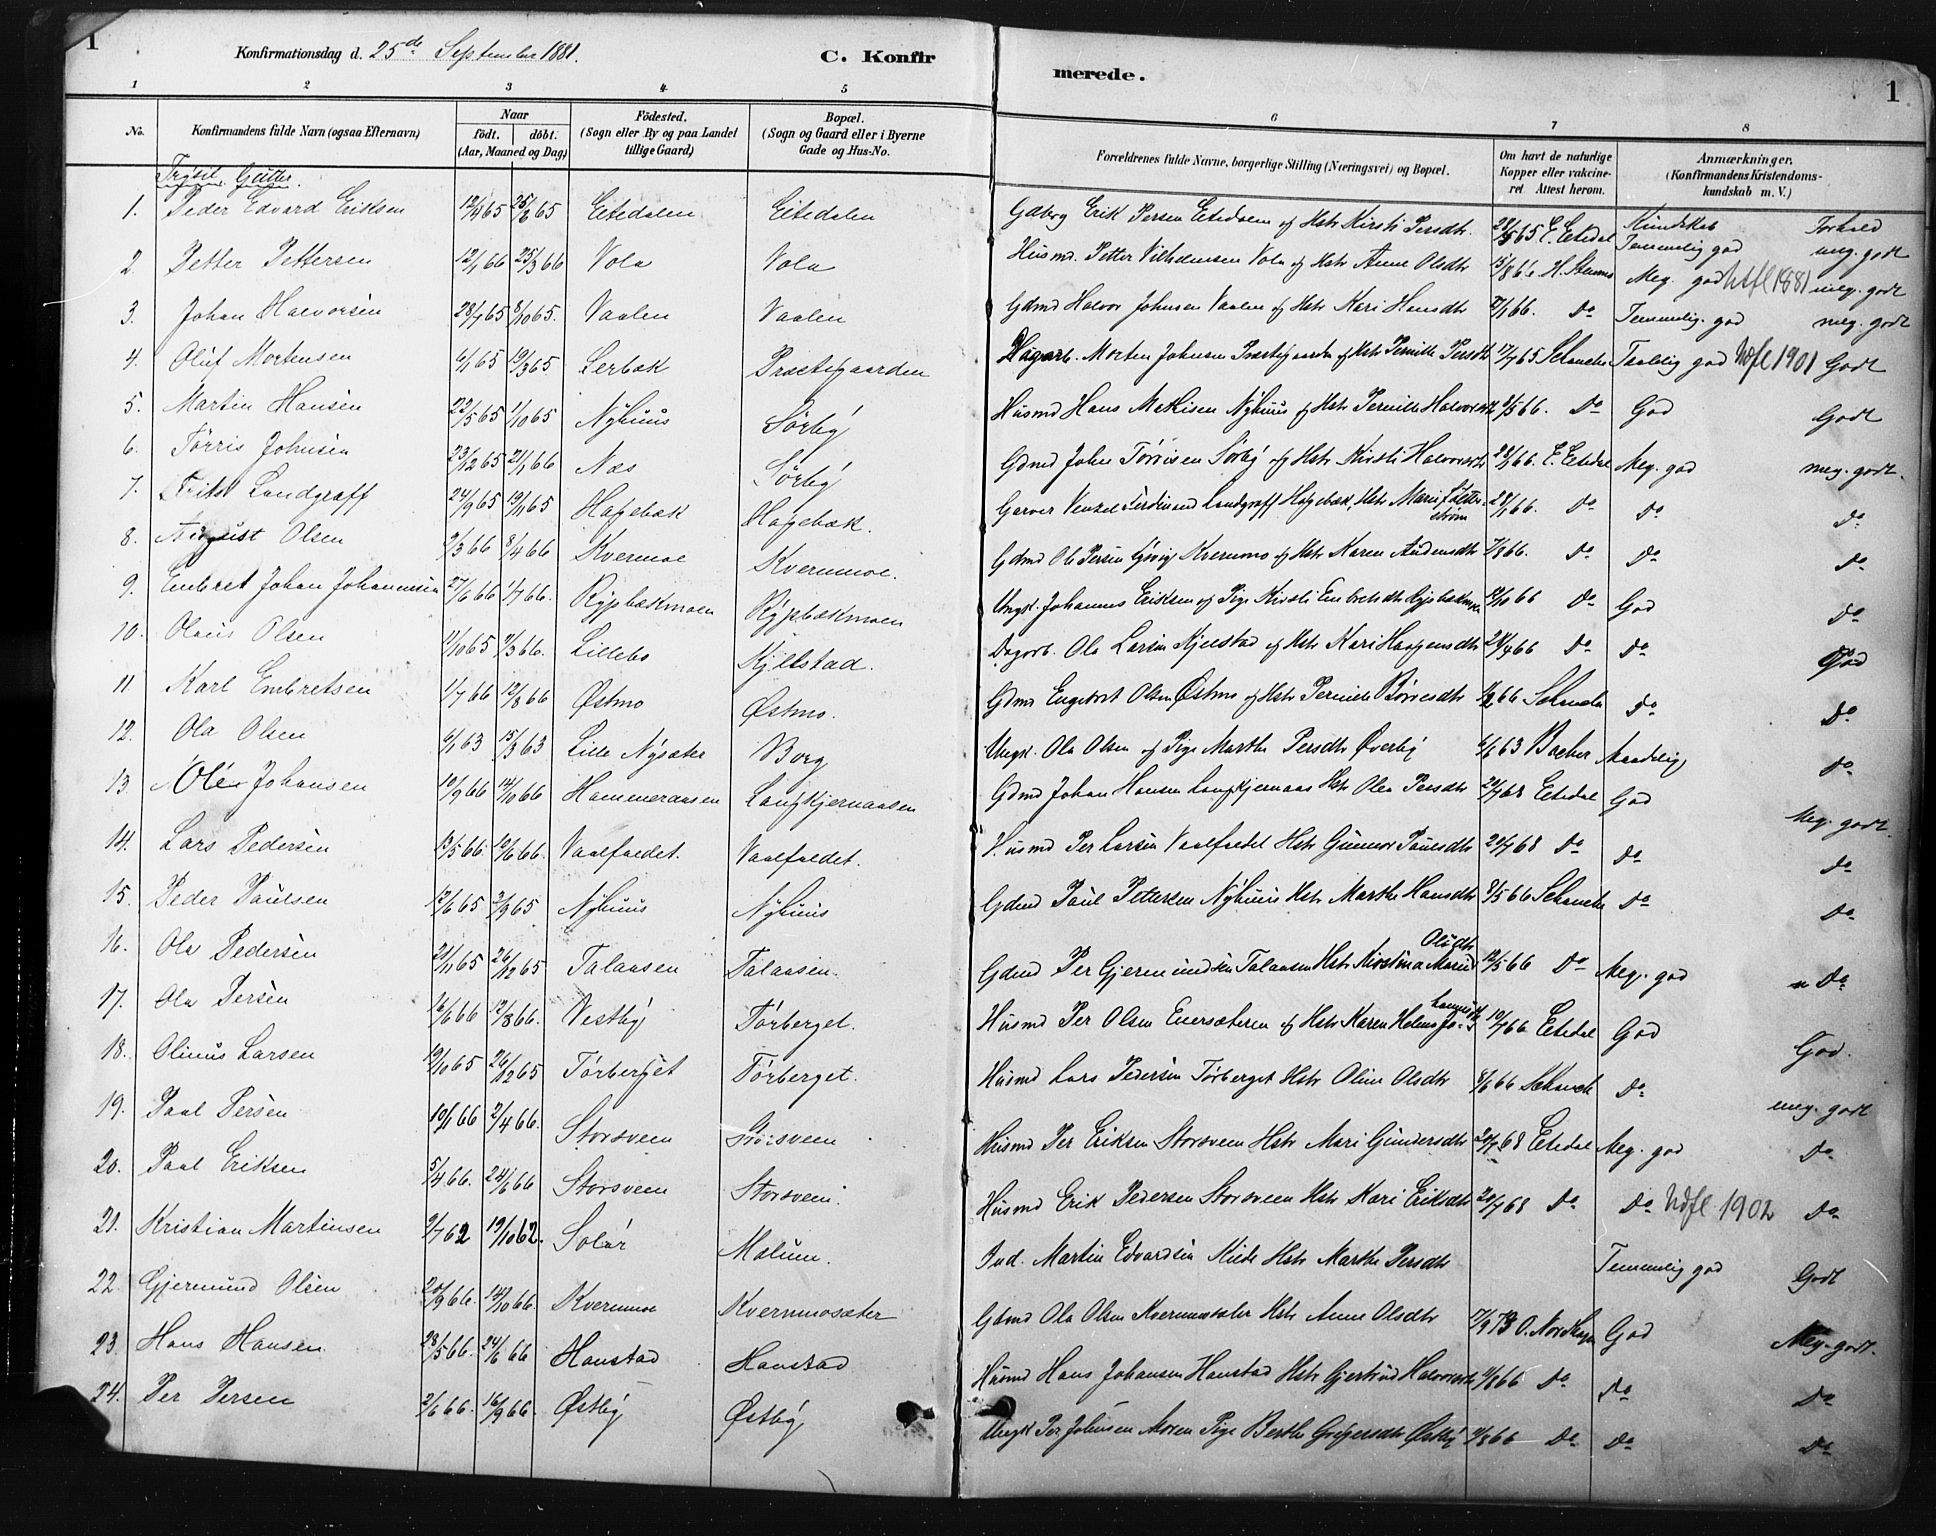 1
Konfirmationsdag d. 25de September 1881.
C. Konfir
merede.
1
1 2 3 4 5 6 7 8
No.
Konfirmandens fulde Navn (ogsaa Efternavn)
Naar
födt. döbt.
(Aar, Maaned og Dag)
Födested.
(Sogn eller By og paa Landet
tillige Gaard)
Bopæl.
(Sogn og Gaard eller i Byerne
Gade og Hus-No.
Forældrenes fulde Navne, borgerlige Stilling (Næringsvei) og Bopæl.
Om havt de naturlige
Kopper eller vakcine-
ret Attest herom.
Anmærkninger.
(Konfirmandens Kristendoms-
kundskab m. V.)
Trysil Gutter.
Kundskab Forhold
1. Peder Edvard Eriksen 12/4 65 25/6 65 Eitedalen Gdbrg Erik Persen Hstr Kirsti Persdtr. 28/5 65 Temmelig god meg. godt
2. Petter Pettersen 12/1 66 25/3 66 Vola Vola Husmd Petter Vilhelmsen Vola og Hstr Anne Olsdtr 15/8 66 Meg. god Udfl 1881 meg. godt
3. Johan Halvorsen 28/7 65 8/10 65. Vaalen Vaalen Gdmd Halvor Johnsen Vaalen og Hstr Kari Hansdtr 27/1 66. Do Temmelig. god meg. godt
4. Oluf Mortensen 6/1 65 19/3 65 Lerbæk Præstegaarden Dagarb. Morten Johnsen Præstegaarden og Hstr Pernille Persdtr 17/7 65 Schanche Taalelig god Udfl 1901 Godt
5. Martin Hansen 22/5 65 1/10 65 Nyhuus Sørby Husmd Hans Mathisen Nyhuus og Hstr Pernille Halvorsdtr 8/5 66. Do God Godt
6. Tørris Johnsen 23/12 65 21/1 66 Næs Sørby Gdmd John Tørrisen Sørby og Hstr Kirsti Halvorsdtr 28/1 66. Meg. god meg. godt.
7. Frits Landgraff 24/9 65 19/11 65 Hagebæk Hagebæk. Garver Venzel Ferdinand Landgraff Hagebæk, Hstr Marie 28/1 66. Do Do Do
8. August Olsen 9/3 66 8/4 66 Kvermoe Kvermmoe. Gdmd Ole Persen Kvermmo og Hstr Karen Andersdtr 7/8 66. Do Do Do
9. Embret Johan Johannesen 27/6 66 1/7 66. Rypbækmoen Rypbækmoen Ungk. Johannes Eriksen og Pige Kirsti Embretsdtr Rypbækmoen 14/10 66 Do God Do
10. Olaus Olsen 11/10 65 9/3 66. Lillebo Kjelstad. Dagarb. Ole Larsen Kjelstad og Hstr Kari Haagensdtr 24/4 66 Do Do God
11 Karl Embretsen 1/7 66 12/8 66 Østmo Østmo. Gdmd Engebret Olsen Østmo og Hstr Pernille Børresdtr Schanche Do Do
12. Ola Olsen 6/1 63 15/3 63 Lille Nysæter Borg Ungk. Ola Olsen og Pige Marthe Persdtr Øverby 6/6 63 Bacher Maadelig Do
13. Ole Johansen 10/9 66 14/10 66 Hammeraasen Langkjernaasen Gdmd Johan Hansen Langkjernaas Hstr Olea Persdtr 20/7 68 Eitedal God Meg. godt.
14. Lars Pedersen 13/5 66. 10/6 66. Vaalfaldet. Vaalfaldet. Husmd Per Larsen Vaalfaldet Hstr Gunnor Paulsdtr 20/7 68 Do Do Do
15. Peder Paulsen 12/6 65 2/9 65 Nyhuus Nyhuus Gdmd Paul Pettersen Nyhuus Hstr Marthe Hansdtr 8/5 66 Schanche Do Do
16. Ola Pedersen 21/11 65 26/12 65 Talaasen Talaasen. Gdmd Per Gjermundsen Talaasen Hstr Kirstina Marie Olsdtr 12/5 66 Do Meg. god Do
17. Ola Persen 16/6 66 12/8 66. Vestby Tørberget. Husmd Per Olsen Enersæteren og Hstr Karen Helene 10/7 66 Eitedal God God.
18. Olinus Larsen 19/10 65 26/12 65 Tørberget Tørberget. Husmd Lars Pedersen Tørberget Hstr Oline Olsdtr 8/6 66 Schanche Do meg. godt
19. Paal Persen 10/1 66 2/4 66. Storsveen Storsveen Husmd Per Eriksen Storsveen Hstr Mari Gundersdtr 20/7 68 Eitedal Meg. god Do
20. Paal Eriksen 5/4 66. 24/6 66 Storsveen Storsveen. Husmd Erik Pedersen Storsveen Hstr Kari Eriksdtr 20/7 68 Do Do Udfl 1902 Do
21. Kristian Martinsen 9/7 62 19/10 62. Solør Malum. Ind. Martin Edvardsen Hstr Marthe Persdtr Temmelig god Godt
22. Gjermund Olsen 20/9 66. 14/10 66. Kvermoe Kvermmosæter Gdmd Ola Olsen Kvermmosæter Hstr Anne Olsdtr 17/9 73 God Meg. godt.
23. Hans Hansen 28/5 66. 24/6 66 Hanstad Hanstad Husmd Hans Johansen Hanstad Hstr Gjertrud Halvorsdtr 11/8 66 Do Do Do
24. Per Persen 2/6 66. 16/9 66. Østby Østby Ungk Per Johnsen Moren Pige Berthe Gregersdtr Østby 11/8 66 Do Do Do